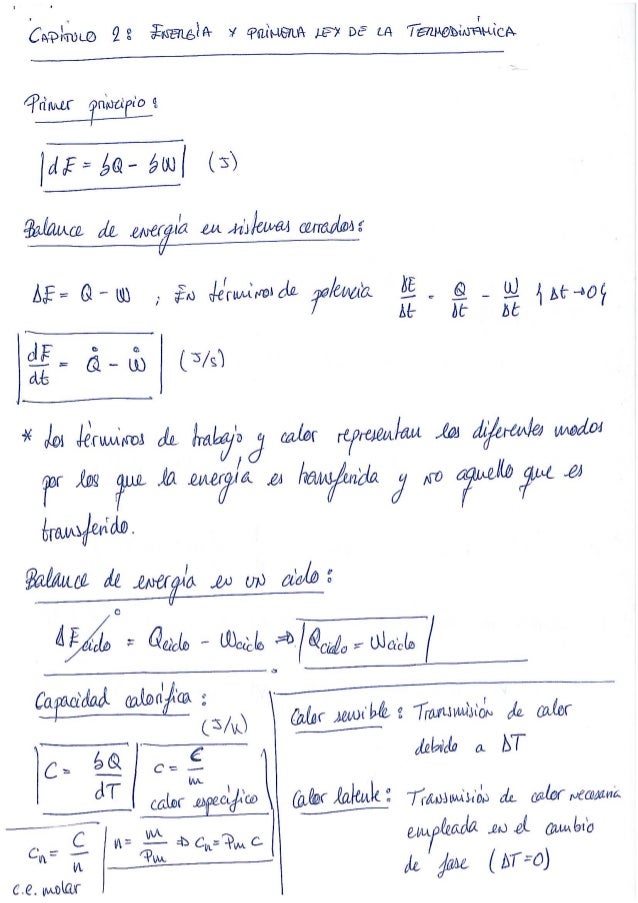 CAPÍTULO 2: ENERGÍA Y PRIMERA LEY DE LA TERMODINÁMICA
Primer principio:
dE = δQ - δW (J)
Balance de energía en sistemas cerrados:
ΔE = Q - W ; EN términos de potencia ΔE/Δt = Q/Δt - W/Δt { Δt → 0 }
dE/dt = Q̇ - Ẇ (J/s)
* Los términos de trabajo y calor representan los diferentes modos
por los que la energía es transferida y no aquello que es
transferido.
Balance de energía en un ciclo:
ΔEciclo = Qciclo - Wciclo ⇒ Qciclo = Wciclo
0
Capacidad calorífica:
(J/K)
C = δQ/dT
c = C/m
calor específico
Cn = C/n
c.e. molar
n = m/Pm ⇒ Cn = Pm C
Calor sensible: Transmisión de calor
debido a ΔT
Calor latente: Transmisión de calor necesaria
empleada en el cambio
de fase (ΔT=0)